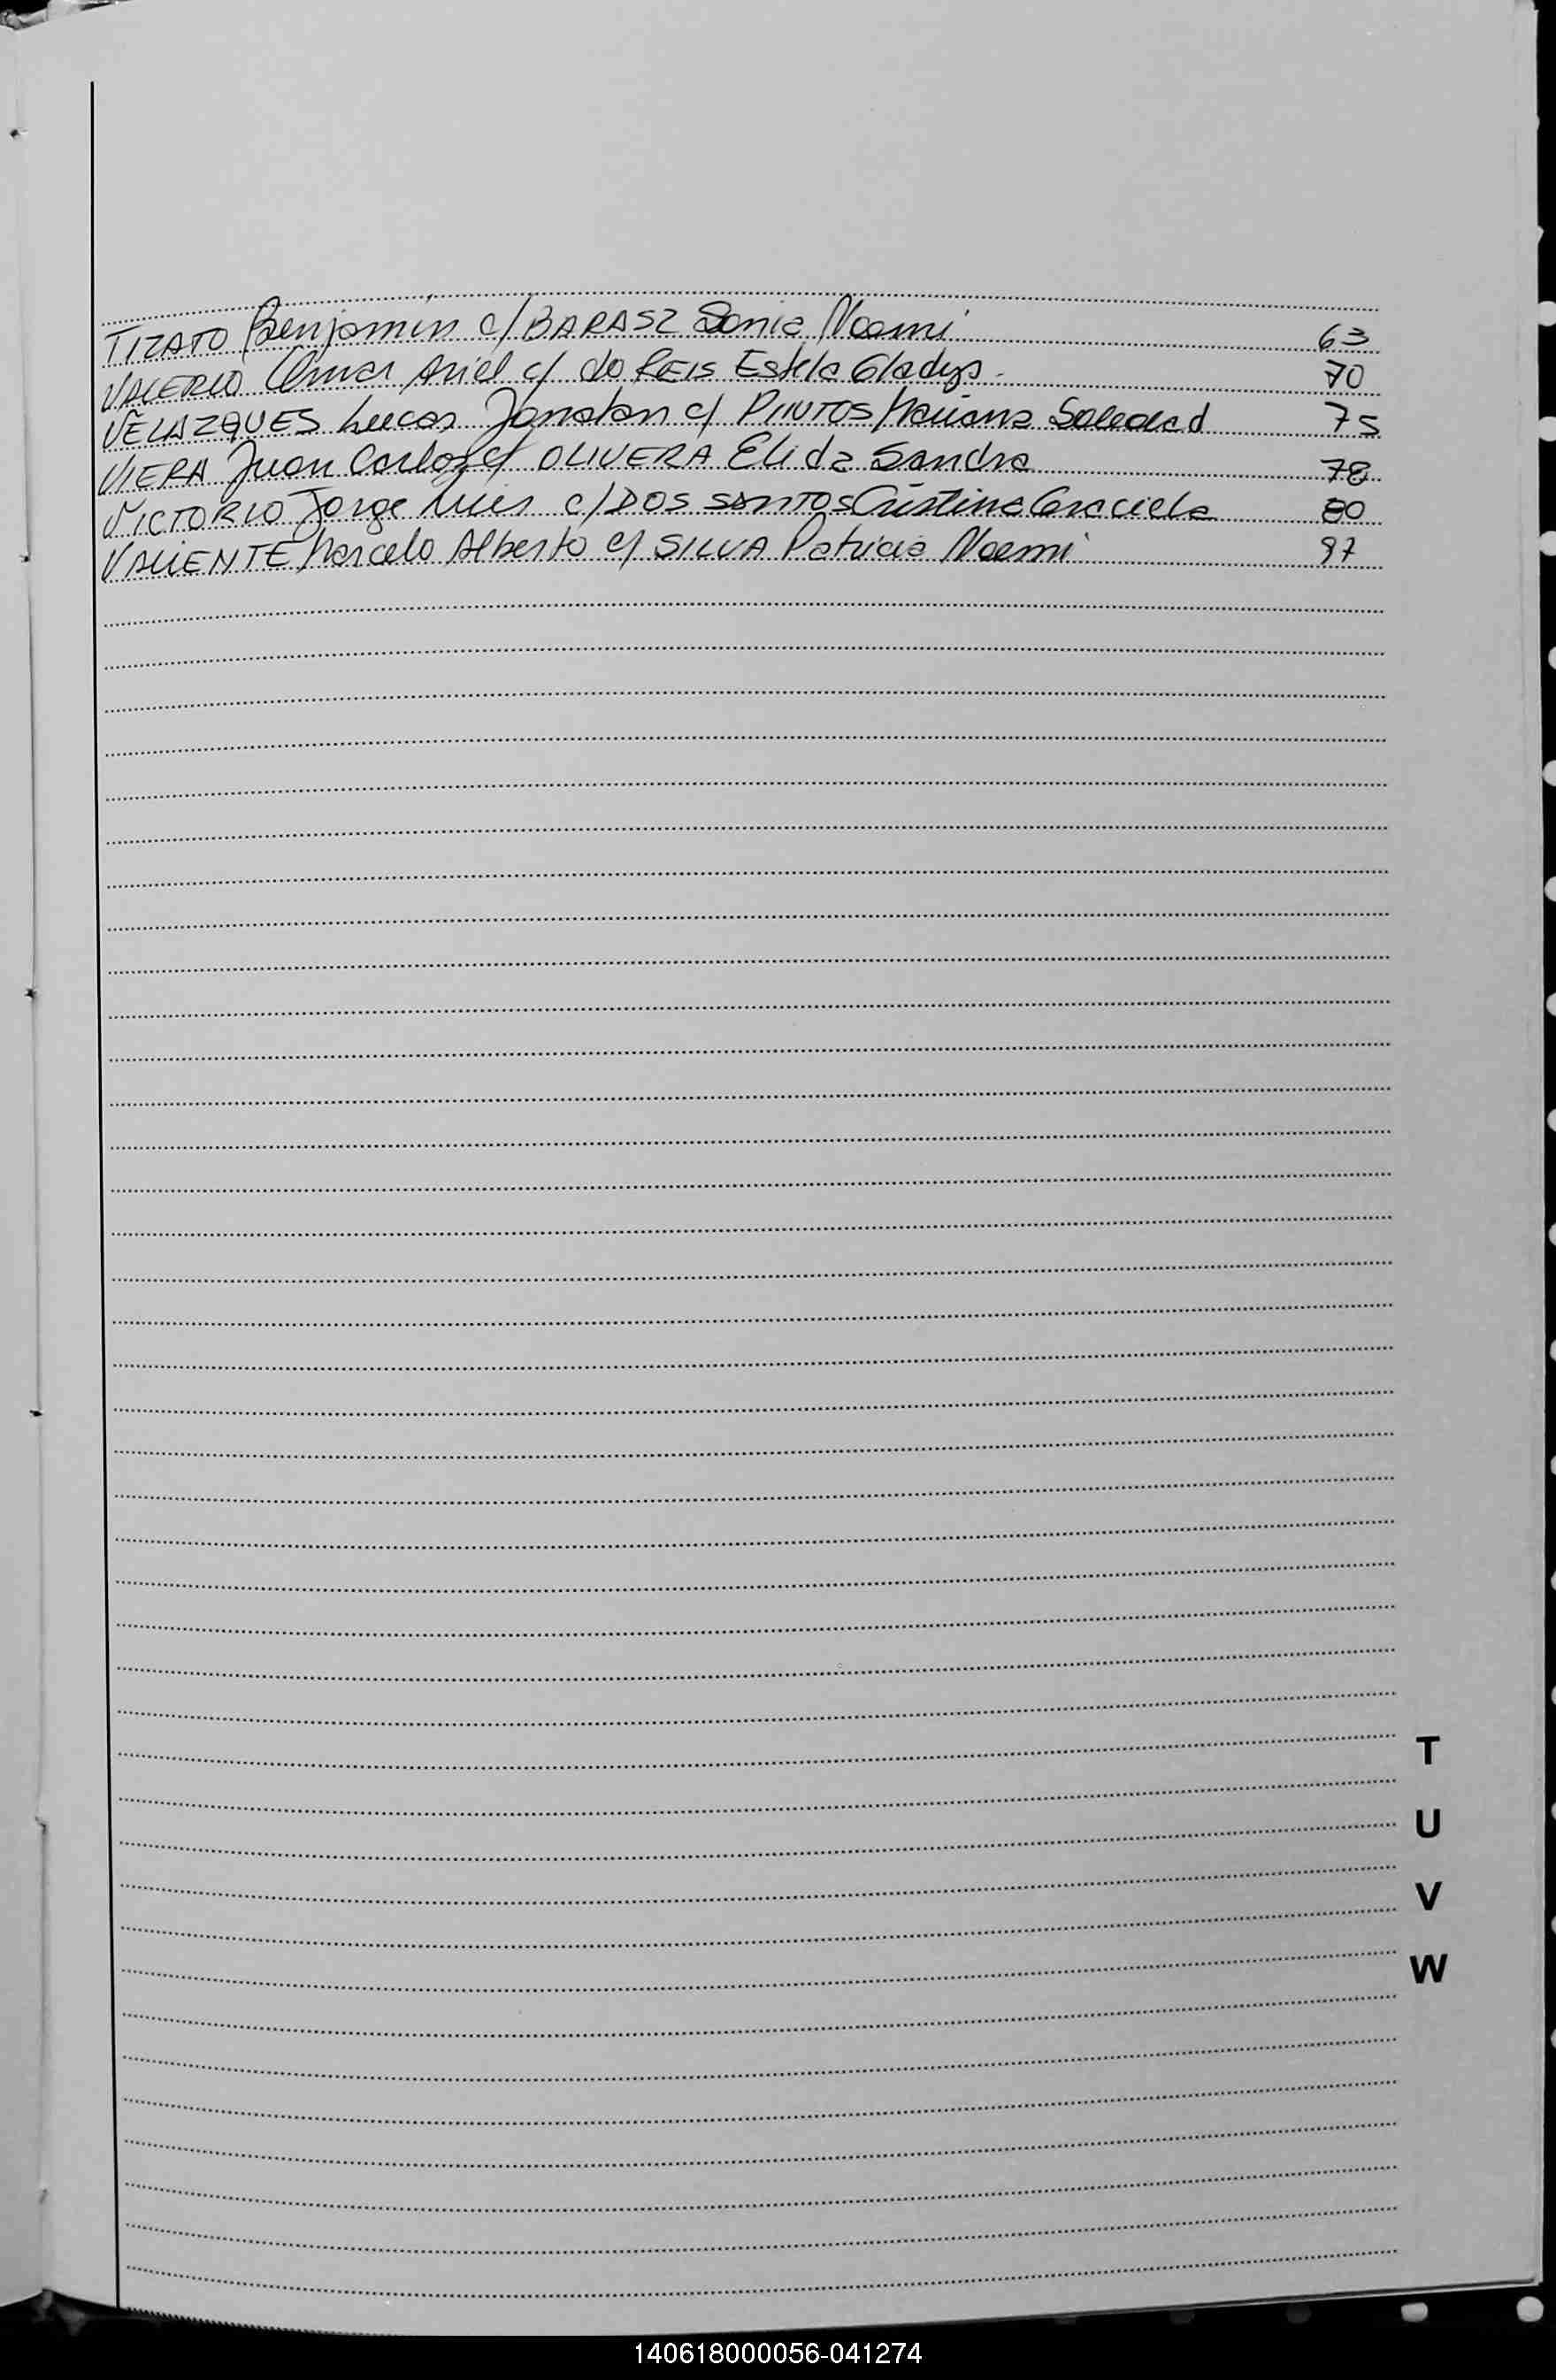 TIZATO Benjamin c/ BARASZ Sonia Noemi 63
VALERIO Omar Ariel c/ do REIS Estela Gladys. 70
VELAZQUES Lucas Jonatan c/ PINTOS Mariana Soledad 75
VIERA Juan Carlos c/ OLIVERA Elida Sandra 78
VICTORIO Jorge Luis c/ DOS SANTOS Cristina Graciela 80
VALIENTE Marcelo Alberto c/ SILVA Patricia Noemi 97
T
U
V
W
140618000056-041274